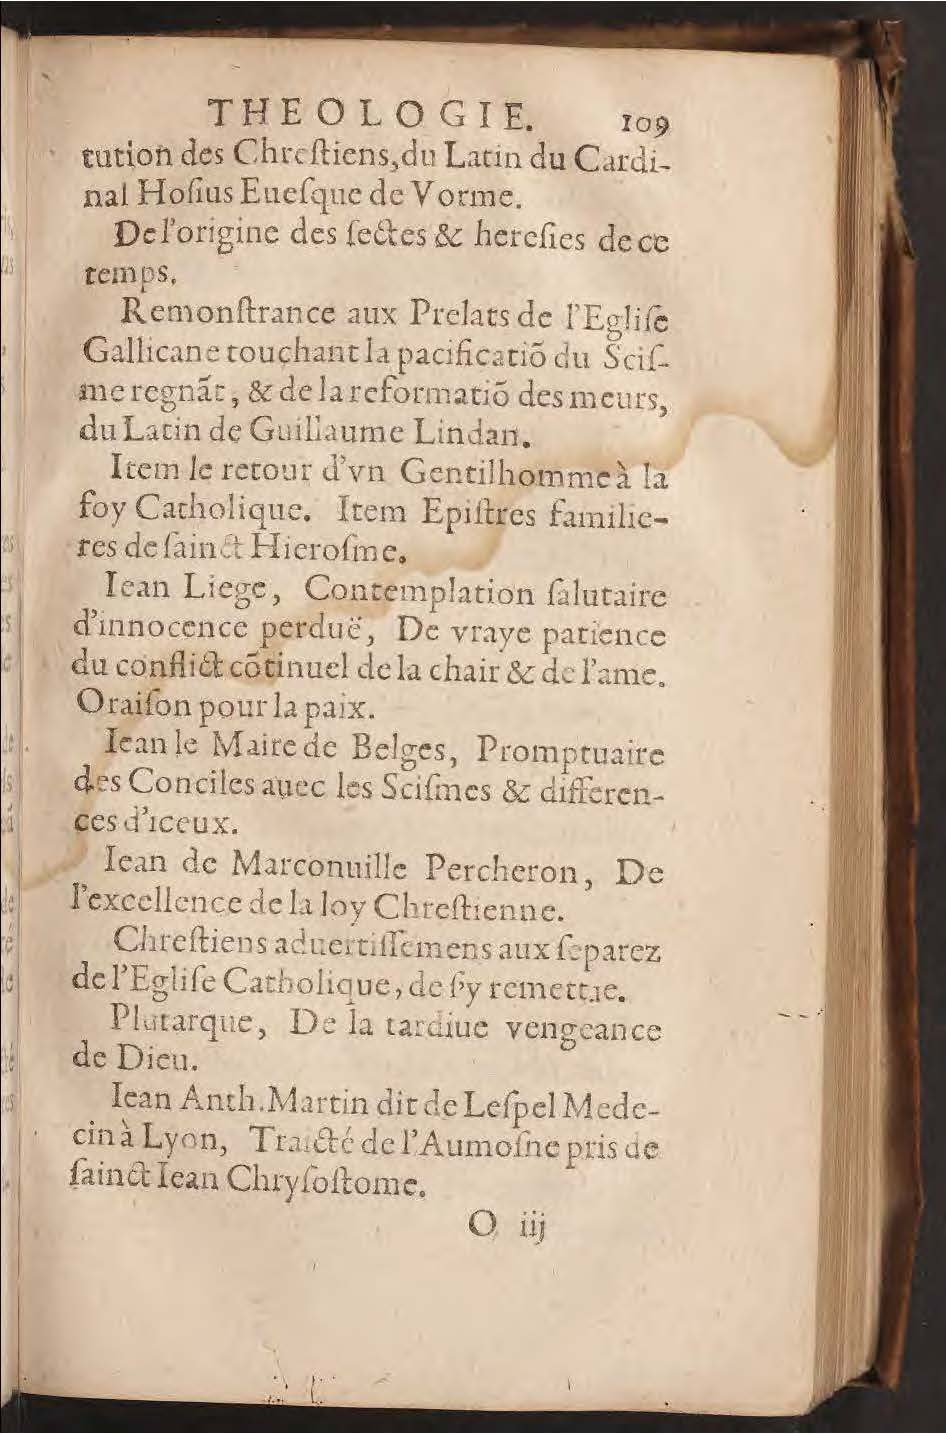 THEOLOGIE. 109
tution des Chreſtiens, du Latin du Cardi-
nal Hoſius Eueſque de Vorme.
De l'origine des ſectes & hereſies de ce
temps.
Remonſtrance aux Prelats de l'Egliſe
Gallicane touchant la pacificatiõ du Sciſ-
me regnãt, & de la reformatiõ des meurs,
du Latin de Guillaume Lindan.
Item le retour d'vn Gentilhomme à la
foy Catholique. Item Epiſtres familie-
res de ſainct Hieroſme.
Iean Liege, Contemplation ſalutaire
d'innocence perduë, De vraye patience
du conflict cõtinuel de la chair & de l'ame.
Oraiſon pour la paix.
Iean le Maire de Belges, Promptuaire
des Conciles auec les Sciſmes & differen-
ces d'iceux.
Iean de Marconuille Percheron, De
l'excellence de la loy Chreſtienne.
Chreſtiens aduertiſſemens aux ſeparez
de l'Egliſe Catholique, de ſ'y remettre.
Plutarque, De la tardiue vengeance
de Dieu.
Iean Anth. Martin dit de Leſpel Mede-
cin à Lyon, Traicté de l'Aumoſne pris de
ſainct Iean Chryſoſtome.
O iij